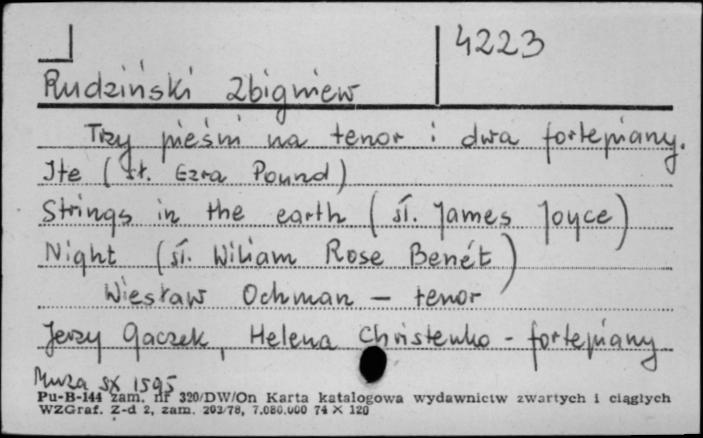 4223
Rudziński Zbigniew
Trzy pieśni na tenor i dwa fortepiany.
Ite (sł. Ezra Pound)
Strings in the earth (sł. James Joyce)
Night (sł. Wiliam Rose Benét)
Wiesław Ochman – tenor
Jerzy Gaczek, Helena Christenko - fortepiany
Muza SX 1595
Pu-B-144 zam. nr 320/DW/On Karta katalogowa wydawnictw zwartych i ciągłych
WZGraf. Z-d 2, zam. 203/78, 7.080.000 74 × 120